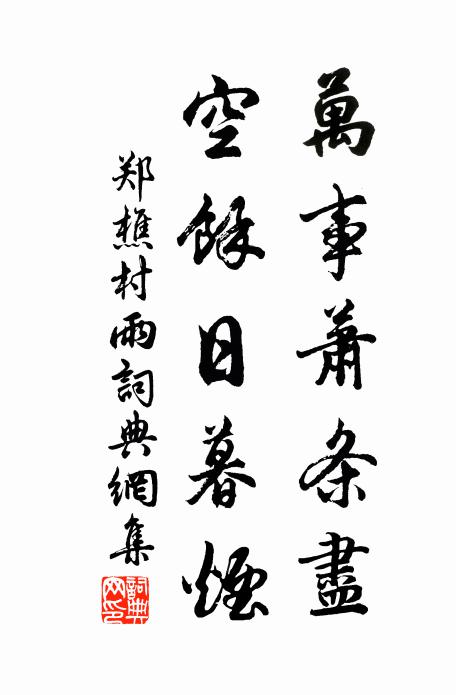 萬事蕭条盡
空餘日暮煙
郑樵村雨詞典網集
詞典網印